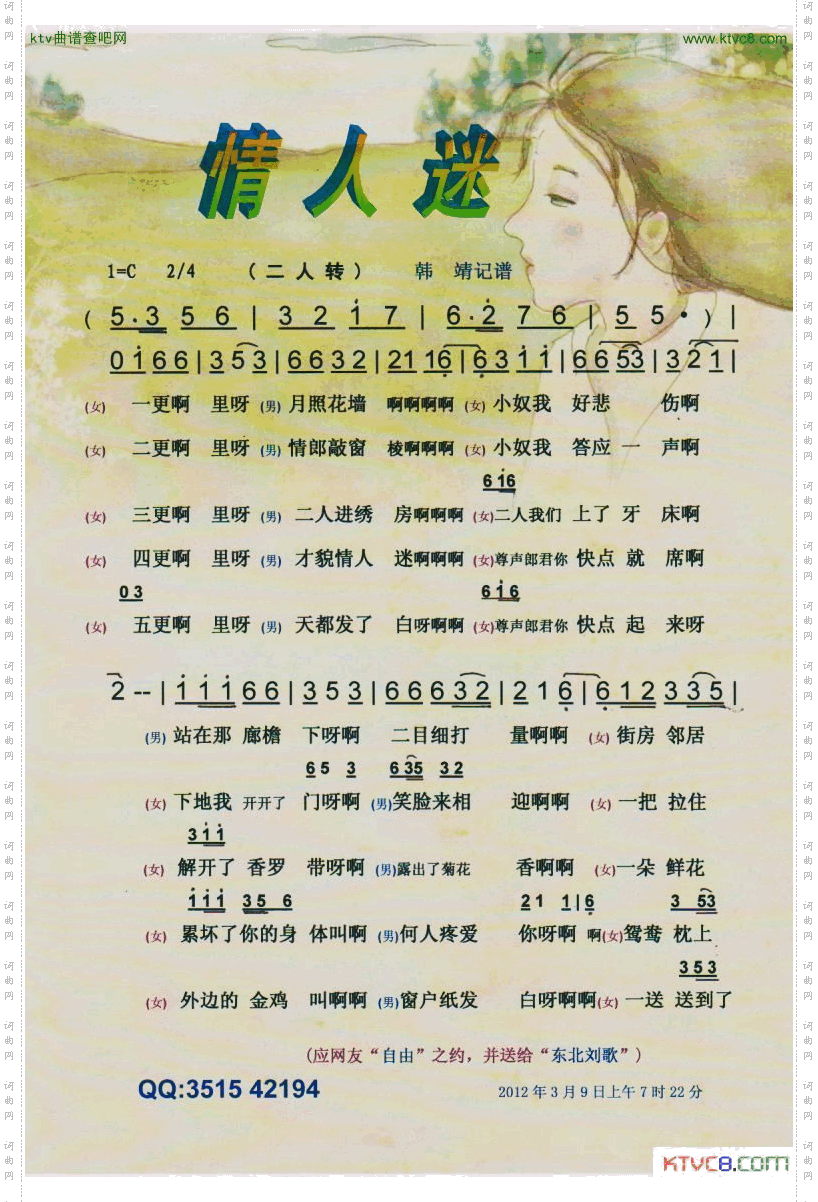 ktv曲谱查吧网 www.ktvc8.com
情人迷
1=C 2/4 (二人转) 韩 靖记谱
( 5·3 5 6 | 3 2 1 7 | 6·2 7 6 | 5 5 • ) |
0 1 6 6 | 3 5 3 | 6 6 3 2 | 21 16 | 6 3 1 1 | 6 6 53 | 3 2 1 |
(女) 一更啊 里呀 (男) 月照花墙 啊啊啊啊 (女) 小奴我 好悲 伤啊
(女) 二更啊 里呀 (男) 情郎敲窗 棱啊啊啊 (女) 小奴我 答应 一 声啊
6 16
(女) 三更啊 里呀 (男) 二人进绣 房啊啊啊 (女)二人我们 上了 牙 床啊
(女) 四更啊 里呀 (男) 才貌情人 迷啊啊啊 (女)尊声郎君你 快点 就 席啊
0 3 6 1 6
(女) 五更啊 里呀 (男) 天都发了 白呀啊啊 (女)尊声郎君你 快点 起 来呀
2 -- | 1 1 1 6 6 | 3 5 3 | 6 6 6 3 2 | 2 1 6 | 6 1 2 3 3 5 |
(男) 站在那 廊檐 下呀啊 二目细打 量啊啊 (女) 街房 邻居
6 5 3 6 35 3 2
(女) 下地我 开开了 门呀啊 (男)笑脸来相 迎啊啊 (女) 一把 拉住
3 1 1
(女) 解开了 香罗 带呀啊 (男)露出了菊花 香啊啊 (女)一朵 鲜花
1 1 1 3 5 6 2 1 1 | 6 3 53
(女) 累坏了你的身 体叫啊 (男)何人疼爱 你呀啊 啊(女)鸳鸯 枕上
3 5 3
(女) 外边的 金鸡 叫啊啊 (男)窗户纸发 白呀啊啊(女) 一送 送到了
(应网友“自由”之约，并送给“东北刘歌”)
QQ:3515 42194 2012年3月9日上午7时22分
KTVC8.COM